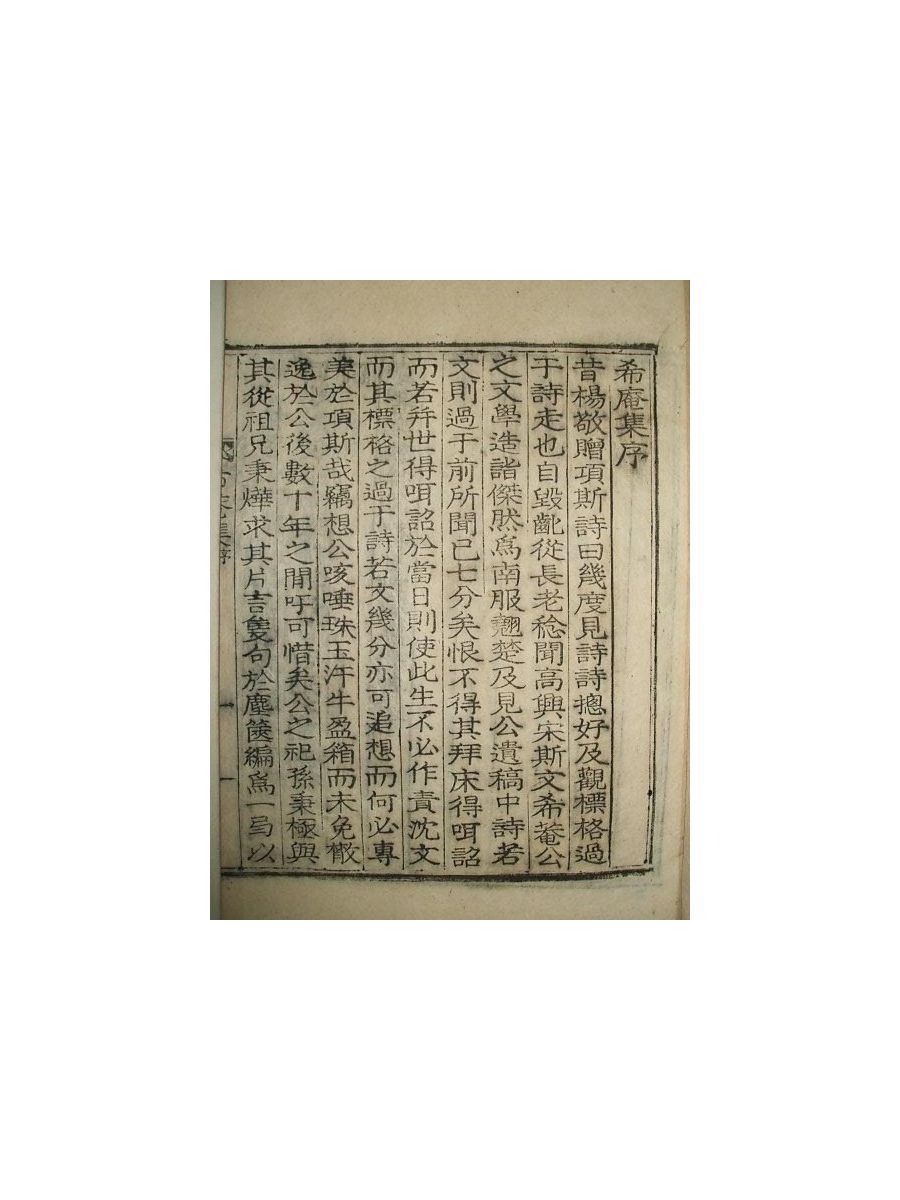 希庵集序
昔楊敬贈項斯詩曰幾度見詩詩摠好及觀標格過
于詩走也自毀齔從長老稔聞高興宋斯文希菴公
之文學造詣傑然爲南服翹楚及見公遺稿中詩若
文則過于前所聞已七分矣恨不得其拜床得咡詔
而若幷世得咡詔於當日則使此生不必作責沈文
而其標格之過于詩若文幾分亦可追想而何必專
美於項斯哉竊想公咳唾珠玉汗牛盈箱而未免散
逸於公後數十年之間吁可惜矣公之祀孫秉極與
其從祖兄秉燁求其片言隻句於塵篋編爲一局以